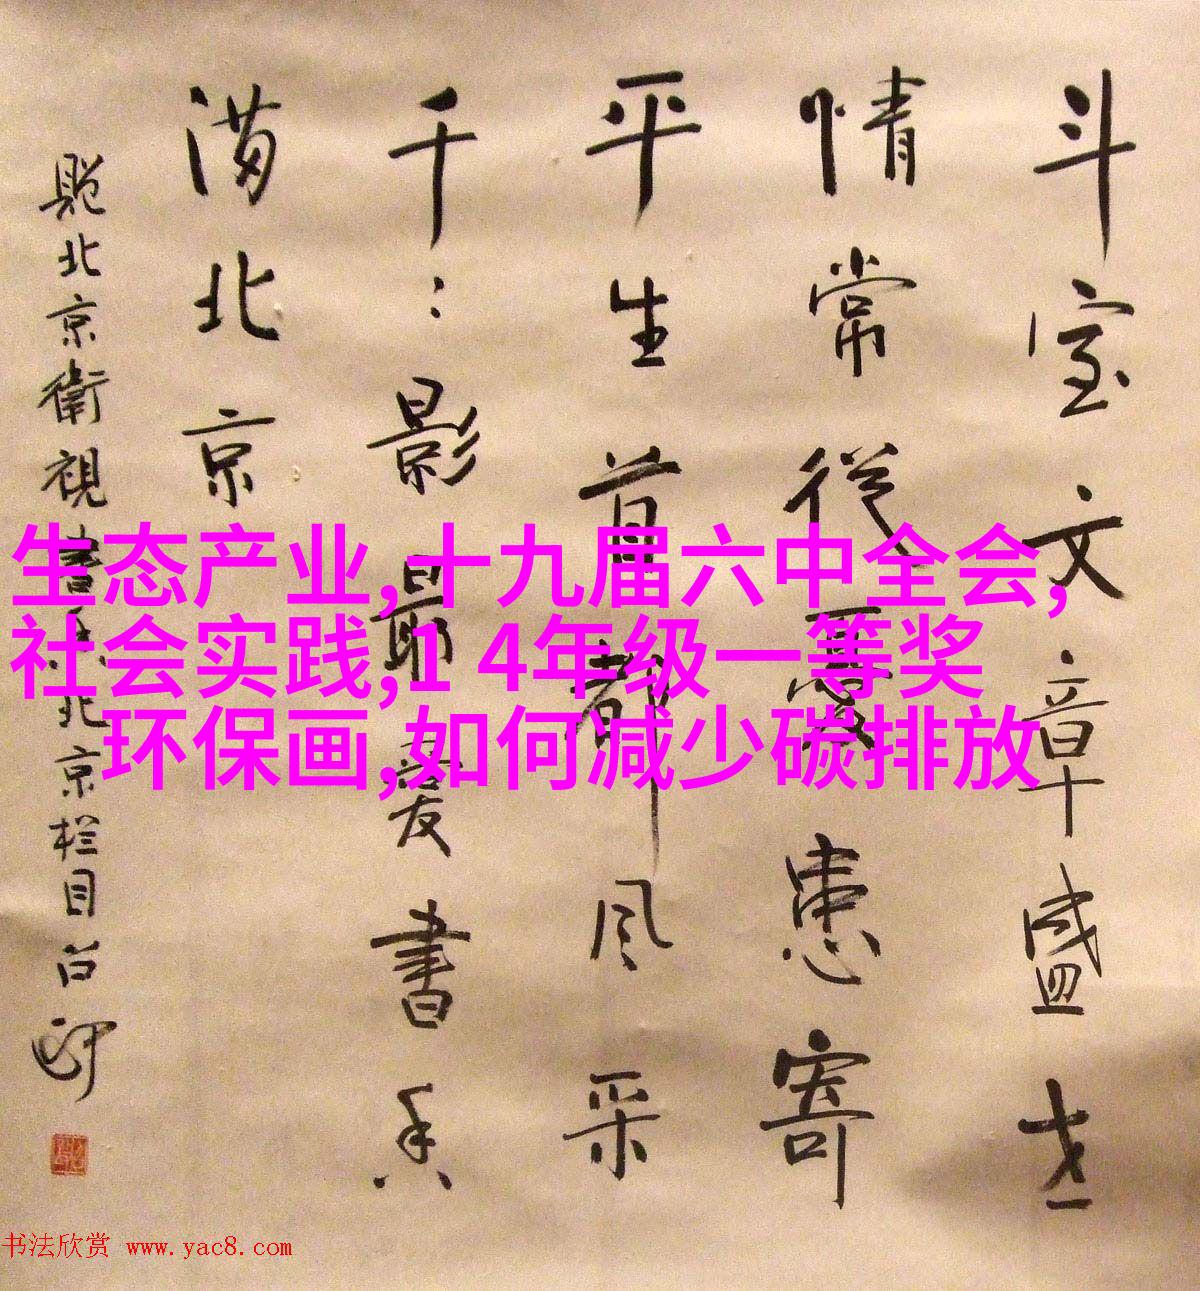 斗室文章盛世
情常從憂患寄
平生首都风采
千〻影最愛書香
满北京
北京衛視書香北京栏目
生态产业,十九届六中全会,
社会实践,1 4年级一等奖
环保画,如何减少碳排放
书法欣赏 www.yac8.com